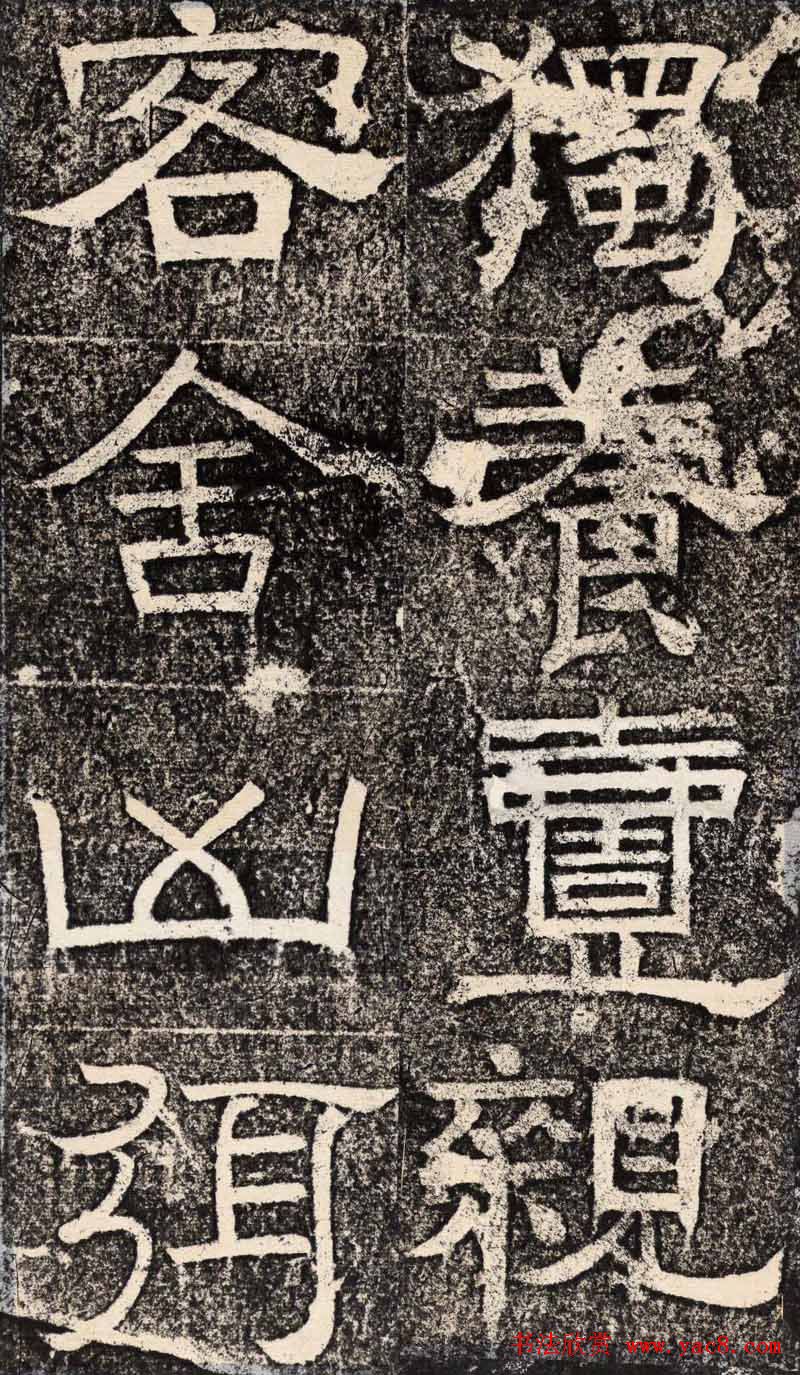 獨養壹親
客舍凶弭
书法欣赏 www.yac8.com